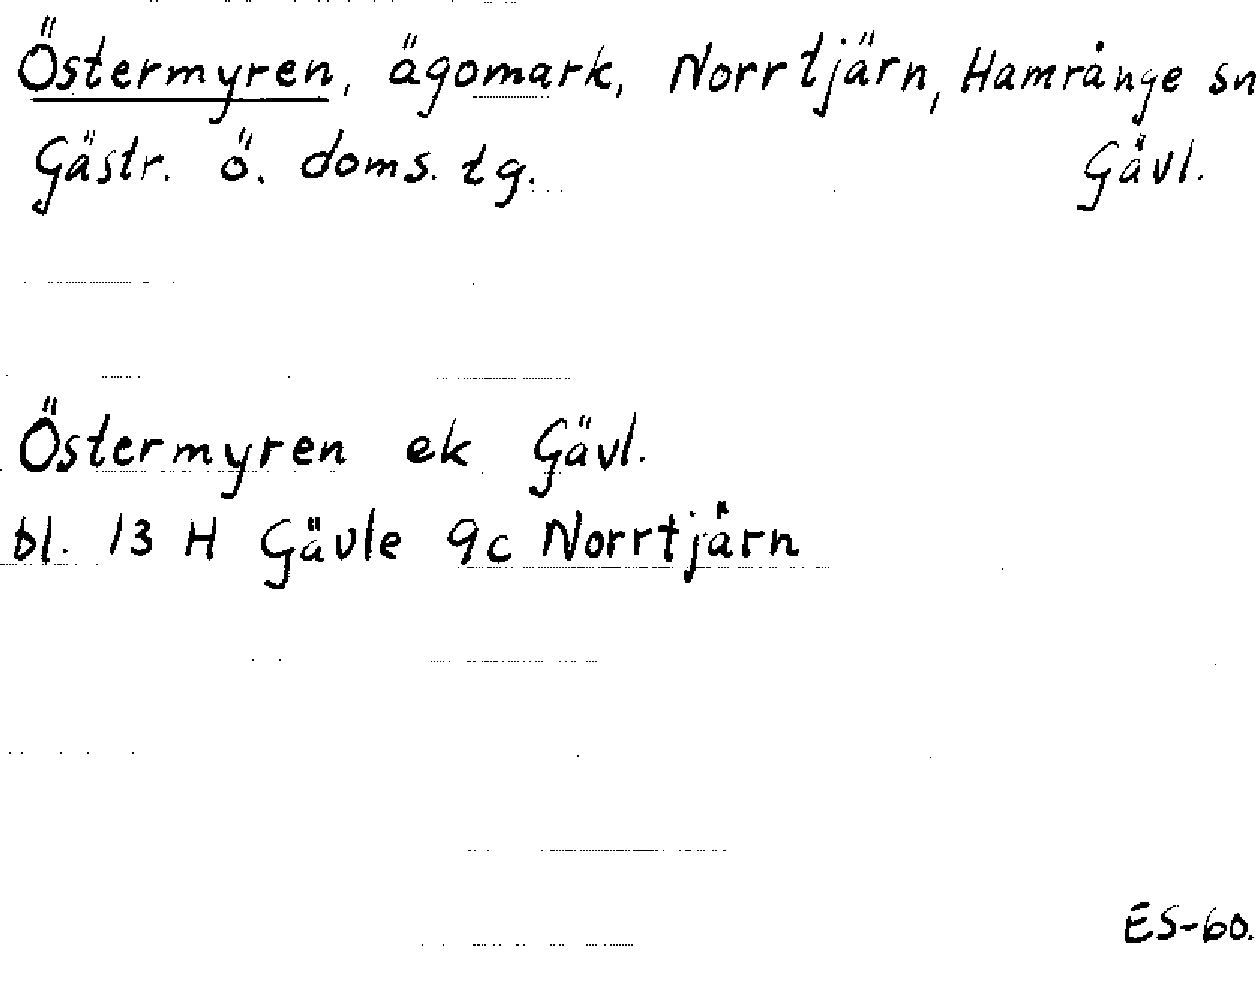 Östermyren, ägomark, Norrtjärn, Hamrånge sn
Gästr. ö. doms. tg. Gävl.
Östermyren ek Gävl.
bl. 13 H Gävle 9c Norrtjärn
ES-60.